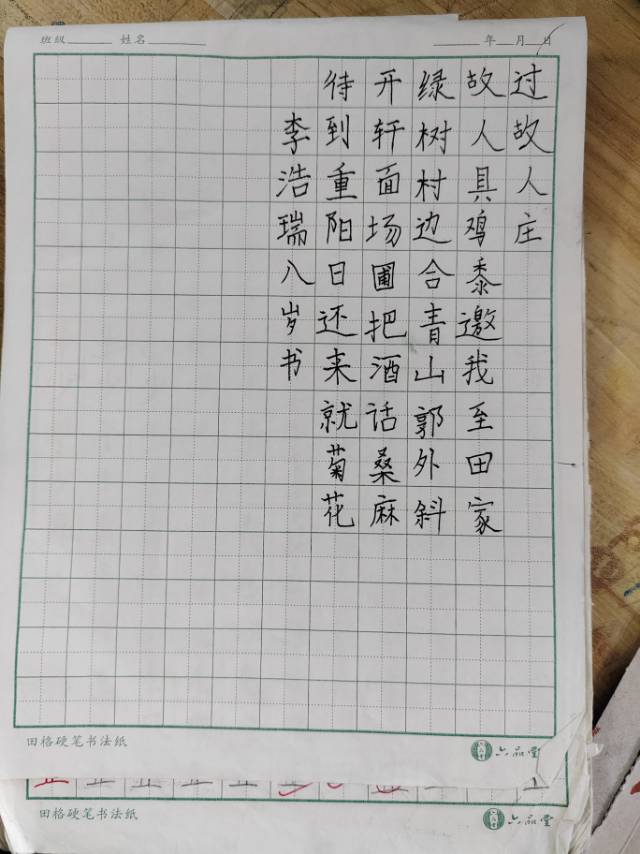 班级 姓名 年 月 日
过故人庄
故人具鸡黍邀我至田家
绿树村边合青山郭外斜
开轩面场圃把酒话桑麻
待到重阳日还来就菊花
李浩瑞八岁书
田格硬笔书法纸 六品堂
田格硬笔书法纸 六品堂